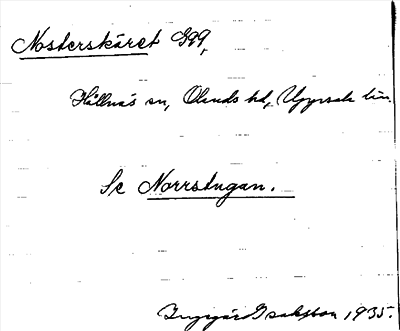 Nosterskäret Ggg,
Hållnäs sn, Olands hd, Uppsala län
Se Norrstugan.
Ingegärd Isaksson 1935.